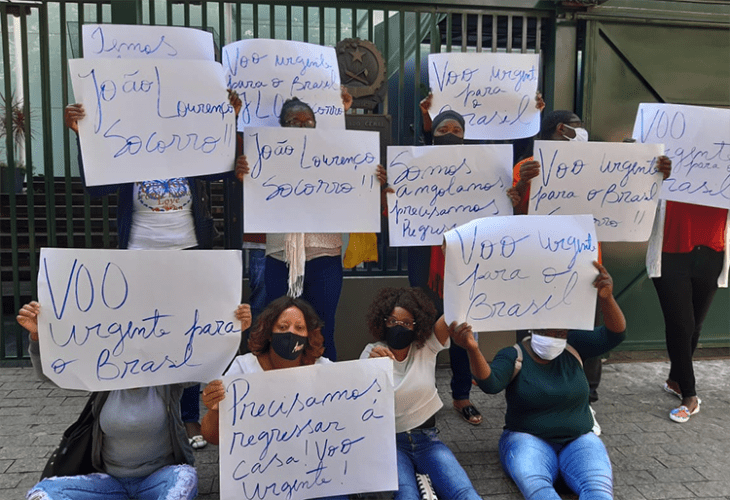 Temos
João Lourenço
Socorro!!
Voo urgente
para o Brasil
JL
Socorro
João Lourenço
Socorro!!
Voo urgente
para
o
Brasil
Somos
angolanos
precisamos
Regressar
Voo urgente
para o Brasil
VOO
urgente
para o
Brasil
VOO
urgente para
o Brasil
Voo urgente
para o
Brasil
Precisamos
regressar á
casa! Voo
urgente!